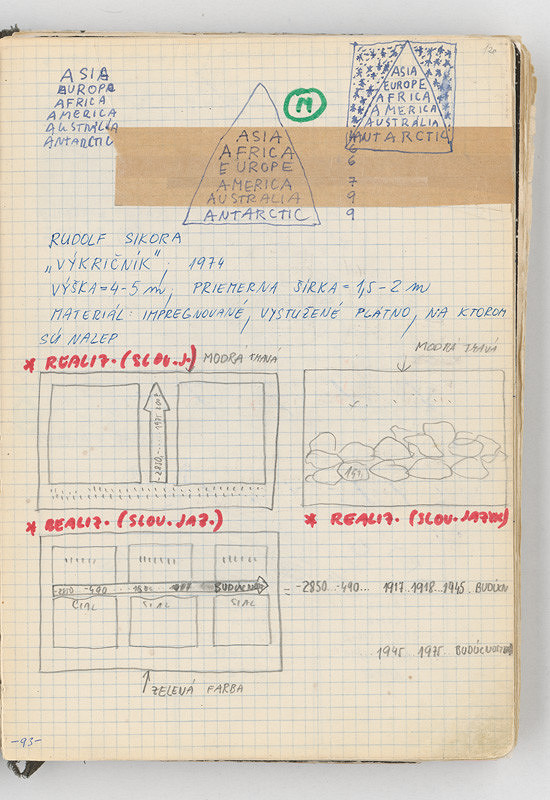 120
ASIA
EUROPE
AFRICA
AMERICA
AUSTRÁLIA
ANTARCTIC
N
ASIA
AFRICA
EUROPE
AMERICA
AUSTRALIA
ANTARCTIC
ASIA
EUROPE
AFRICA
AMERICA
AUSTRÁLIA
ANTARCTIC
6
6
7
9
9
RUDOLF SIKORA
„VÝKRIČNÍK", 1974
VÝŠKA = 4-5 m, PRIEMERNA ŠÍRKA = 1,5 - 2 m
MATERIÁL: IMPREGNOVANÉ, VYSTUŽENÉ PLÁTNO, NA KTOROM
SÚ NALEP
* REALIZ. (SLOV. J.) MODRÁ TMAVÁ
MODRÁ TMAVÁ
-2850,-... 1975
* REALIZ. (SLOV. JAZ.)
* REALIZ. (SLOV. JAZYK)
-2850 -490
ČIAL SIAL SIAL
= -2850...-490... 1917..1918..1945 BUDÚCN
1945 1975 BUDÚCNOSŤ
ZELENÁ FARBA
-93-